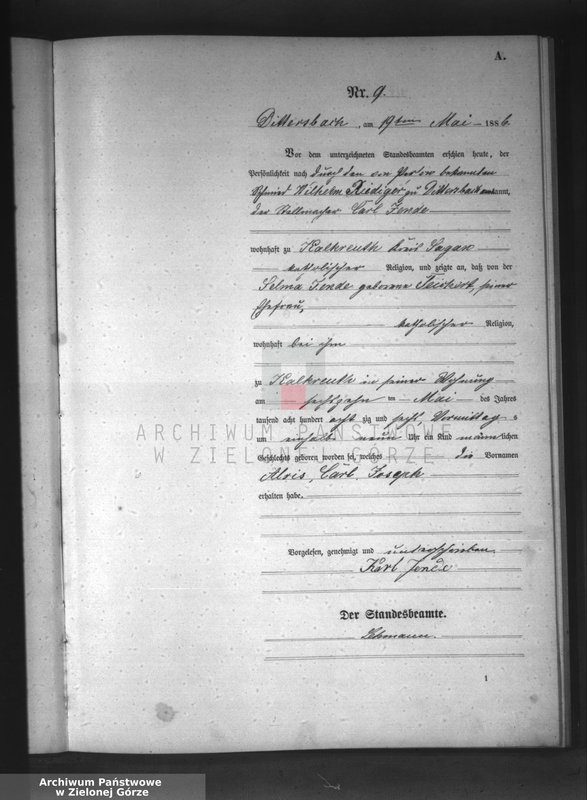 A.
Nr. 9.
Dittersbach, am 19ten Mai 1886.
Vor dem unterzeichneten Standesbeamten erschien heute, der
Persönlichkeit nach durch den von Person bekannten
Schmied Wilhelm Rüdiger zu Dittersbach kannt,
der Stellmacher Carl Jende
wohnhaft zu Kalkreuth Kreis Sagan
katholischer Religion, und zeigte an, daß von der
Selma Jende geborene Teichert, seiner
Ehefrau,
katholischer Religion,
wohnhaft bei ihm
zu Kalkreuth in seiner Wohnung
am sechszehn ten Mai des Jahres
tausend acht hundert acht zig und sechs Vormittags
um einhalb neun Uhr ein Kind männlichen
Geschlechts geboren worden sei, welches die Vornamen
Alois, Carl, Joseph
erhalten habe.
Vorgelesen, genehmigt und unterschrieben
Karl Jende
Der Standesbeamte.
Lehmann.
1
ARCHIWUM PAŃSTWOWE
W ZIELONEJ GÓRZE
Archiwum Państwowe
w Zielonej Górze